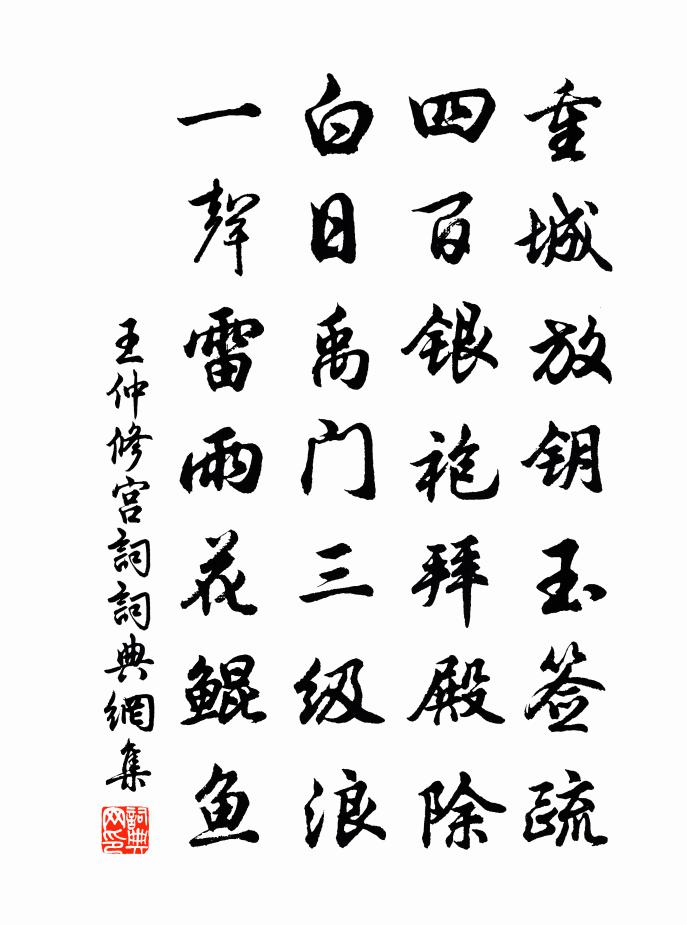 重城放钥玉签疏
四百银袍拜殿除
白日禹门三级浪
一聲雷雨花鲲鱼
王仲修宫詞詞典網集
詞典网印